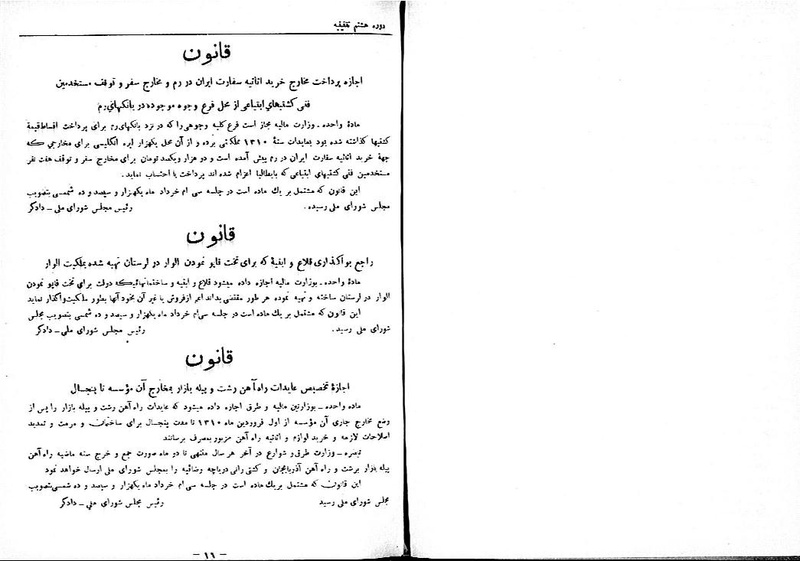 دوره هشتم تقنینیه
قانون
اجازه پرداخت مخارج خرید اثاثیه سفارت ایران در رم و مخارج سفر و توقف مستخدمین
فنی کشتیهای ابتیاعی از محل فرع وجوه موجوده در بانکهای رم
مادهٔ واحده ـ وزارت مالیه مجاز است فرع کلیه وجوهی را که در نزد بانکهای رم برای پرداخت اقساط قیمة
کشتیها گذاشته شده بود بعایدات سنهٔ ۱۳۱۰ مملکتی برده و از آن محل یکهزار لیره انگلیسی برای مخارجی که
جهة خرید اثاثیه سفارت ایران در رم پیش آمده است و دو هزار و یکصد تومان برای مخارج سفر و توقف هفت نفر
مستخدمین فنی کشتیهای ابتیاعی که بایطالیا اعزام شده اند پرداخت یا احتساب نماید.
این قانون که مشتمل بر یك ماده است در جلسه سی ام خرداد ماه یکهزار و سیصد و ده شمسی بتصویب
مجلس شورای ملی رسیده. رئیس مجلس شورای ملی ـ دادگر
قانون
راجع بواگذاری قلاع و ابنیهٔ که برای تخت قاپو نمودن الوار در لرستان تهیه شده بملکیت الوار
مادهٔ واحده ـ بوزارت مالیه اجازه داده میشود قلاع و ابنیه و ساختمانهائیکه دولت برای تخت قاپو نمودن
الوار در لرستان ساخته و تهیه نموده هر طور مقتضی بداند اعم از فروش یا غیر آن بخود آنها بطور ملکیت واگذار نماید
این قانون که مشتمل بر یك ماده است در جلسه سی ام خرداد ماه یکهزار و سیصد و ده شمسی بتصویب مجلس
شورای ملی رسید. رئیس مجلس شورای ملی ـ دادگر
قانون
اجازهٔ تخصیص عایدات راه آهن رشت و پیله بازار بمخارج آن مؤسسه تا پنجسال
ماده واحده ـ بوزارتین مالیه و طرق اجازه داده میشود که عایدات راه آهن رشت و پیله بازار را پس از
وضع مخارج جاری آن مؤسسه از اول فروردین ماه ۱۳۱۰ تا مدت پنجسال برای ساختمان و مرمت و تمدید
اصلاحات لازمه و خرید لوازم و اثاثیه راه آهن مزبور بمصرف برسانند
تبصره ـ وزارت طرق و شوارع در آخر هر سال منتهی تا دو ماه صورت جمع و خرج سنه ماضیه راه آهن
پیله بازار برشت و راه آهن آذربایجان و کشتی رانی دریاچه رضائیه را بمجلس شورای ملی ارسال خواهد نمود
این قانون که مشتمل بر یك ماده است در جلسه سی ام خرداد ماه یکهزار و سیصد و ده شمسی بتصویب
مجلس شورای ملی رسید رئیس مجلس شورای ملی ـ دادگر
ـ ۱۶ ـ